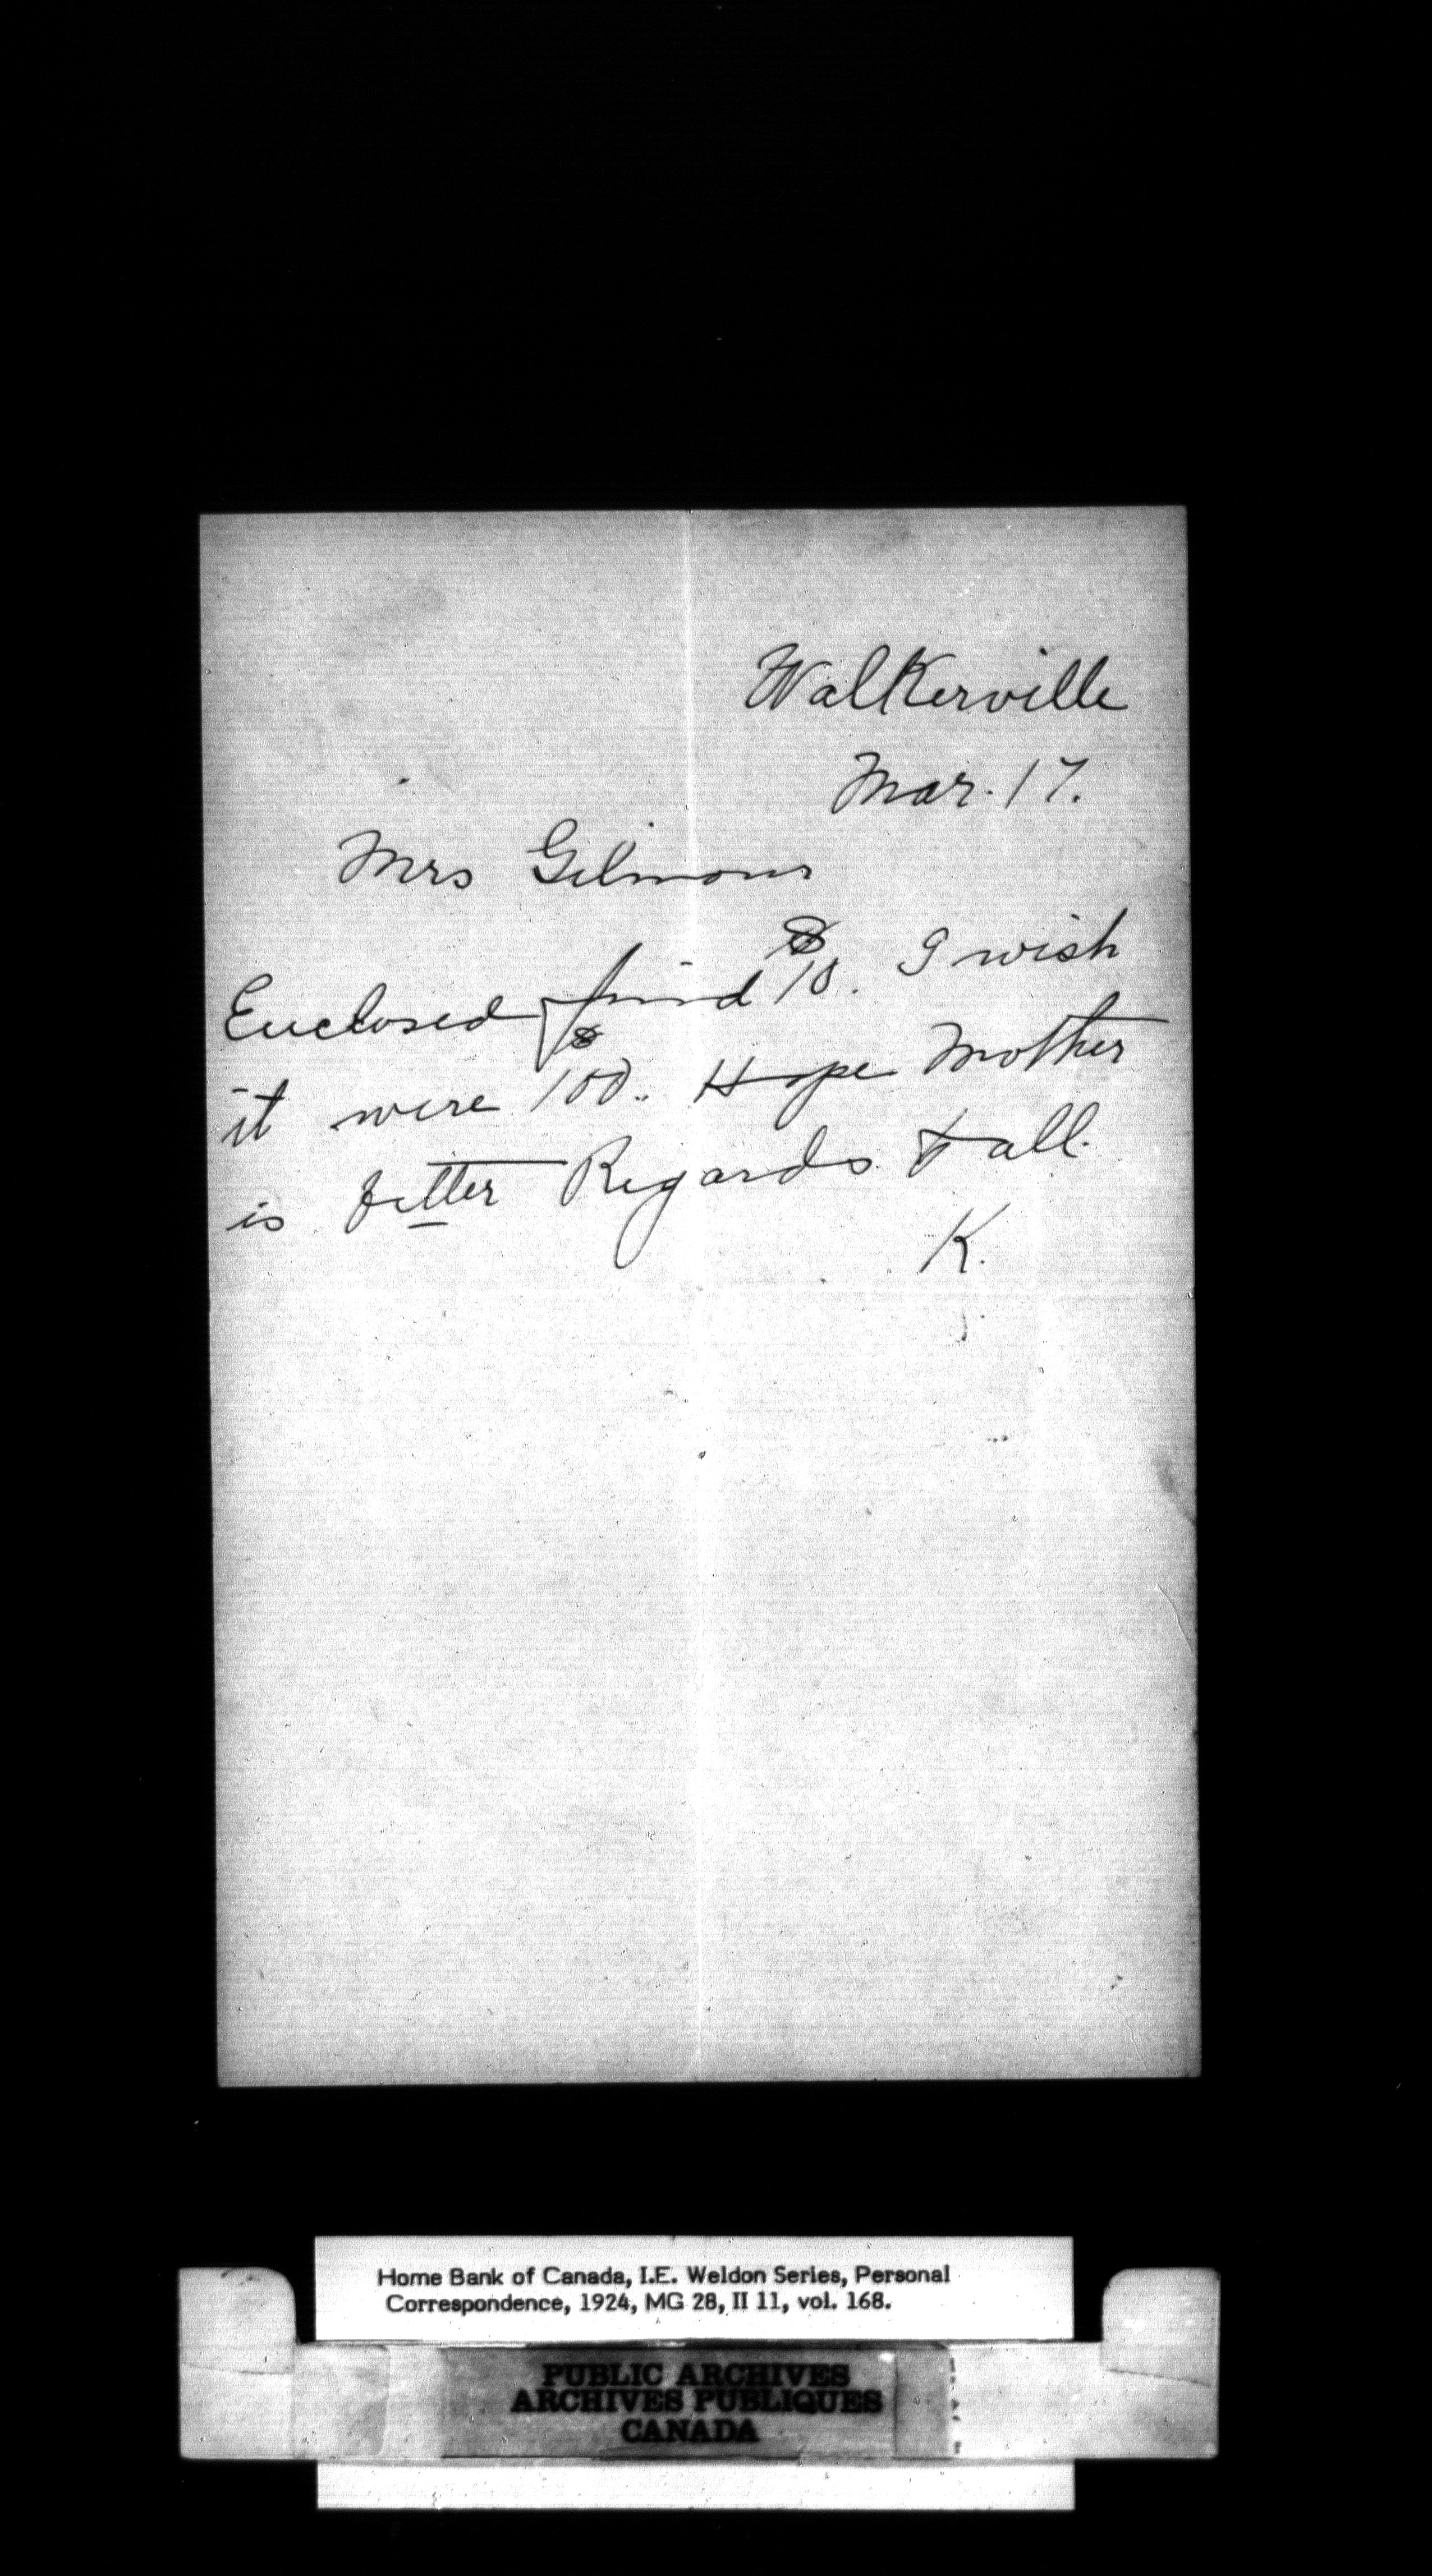 Walkerville
Mar. 17.
Mrs Gilmour
Enclosed find $10. I wish
it were $100. Hope Mother
is better Regards to all.
K.
Home Bank of Canada, I.E. Weldon Series, Personal
Correspondence, 1924, MG 28, II 11, vol. 168.
PUBLIC ARCHIVES
ARCHIVES PUBLIQUES
CANADA